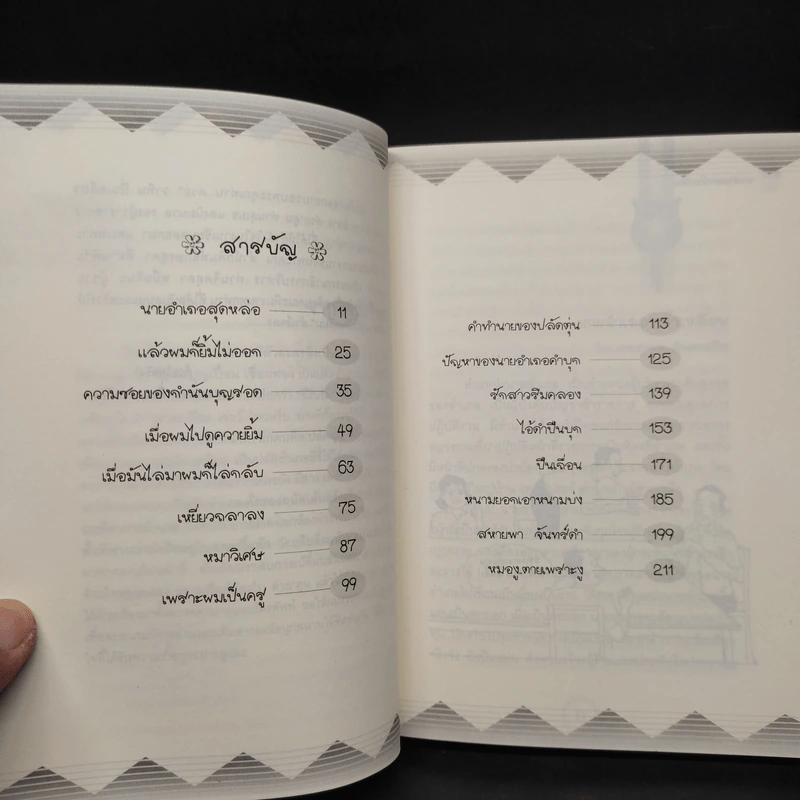 สารบัญ
นายอำเภอสุดหล่อ 11
แล้วผมก็ยิ้มไม่ออก 25
ความซอยของกำนันบุญรอด 35
เมื่อผมไปดูควายยิ้ม 49
เมื่อมันไล่มาผมก็ไล่กลับ 63
เหยี่ยวถลาลง 75
หมาวิเศษ 87
เพราะผมเป็นครู 99
คำทำนายของปลัดตุ่น 113
ปัญหาของนายอำเภอคำบุก 125
รักสาวริมคลอง 139
ไอ้ดำปืนบุก 153
ปืนเถื่อน 171
หนามยอกเอาหนามบ่ง 185
สหายพา จันทร์ดำ 199
หมองูตายเพราะงู 211